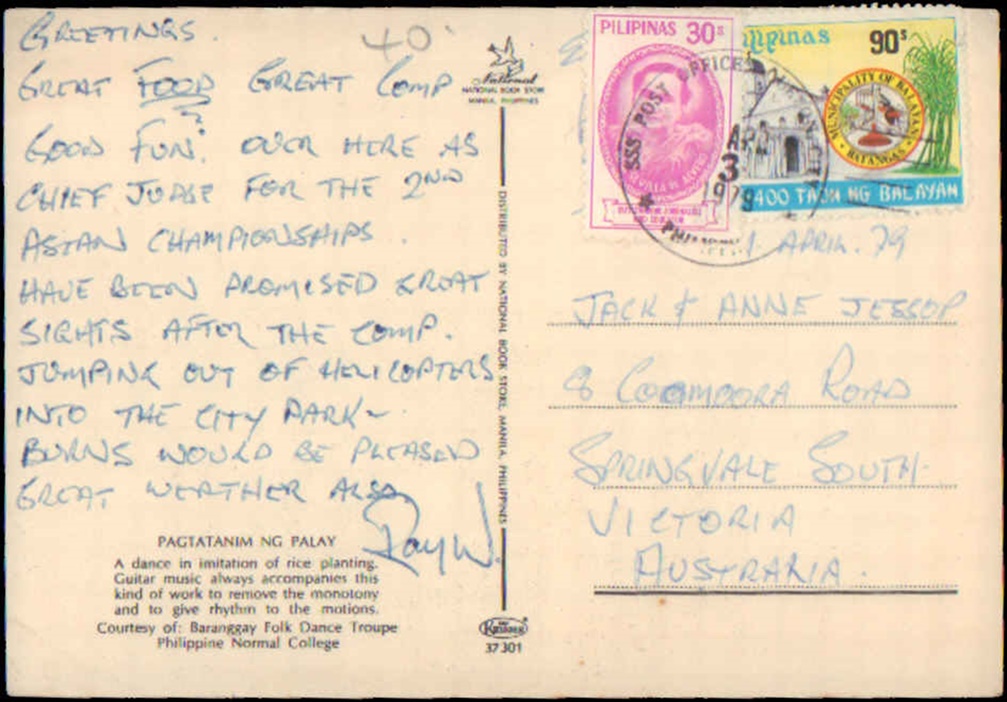 GREETINGS.
GREAT FOOD GREAT COMP
?
GOOD FUN. OVER HERE AS
CHIEF JUDGE FOR THE 2ND
ASIAN CHAMPIONSHIPS.
HAVE BEEN PROMISED GREAT
SIGHTS AFTER THE COMP.
JUMPING OUT OF HELICOPTERS
INTO THE CITY PARK~
BURNS WOULD BE PLEASED
GREAT WEATHER ALSO
Ray W.
PAGTATANIM NG PALAY
A dance in imitation of rice planting.
Guitar music always accompanies this
kind of work to remove the monotony
and to give rhythm to the motions.
Courtesy of: Baranggay Folk Dance Troupe
Philippine Normal College
40
National
NATIONAL BOOK STORE
MANILA, PHILIPPINES
DISTRIBUTED BY NATIONAL BOOK STORE, MANILA, PHILIPPINES
37301
PILIPINAS 30s
Pilipinas 90s
MUNICIPALITY OF BALAYAN
BATANGAS
400 TAON NG BALAYAN
SSS POST OFFICE
APR
3
1979
1 APRIL. 79
JACK & ANNE JESSOP
8 COOMOORA ROAD
SPRINGVALE SOUTH
VICTORIA
AUSTRALIA.